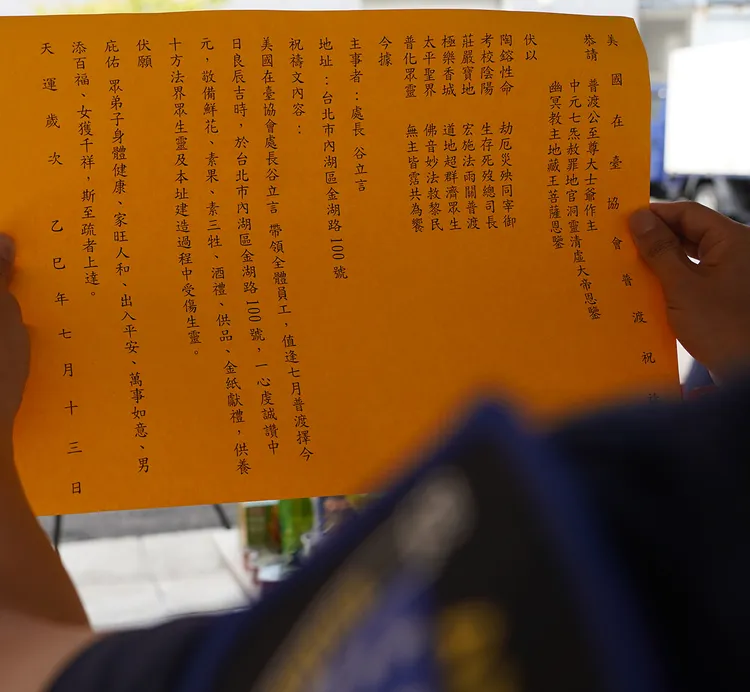 美國在臺協會普渡祝
恭請 普渡公至尊大士爺作主
中元七炁赦罪地官洞靈清虛大帝恩鑒
幽冥教主地藏王菩薩恩鑒
伏以
陶鎔性命 劫厄災殃同宰御
考校陰陽 生存死歿總司長
莊嚴寶地 宏施法雨關普渡
極樂香城 道地超群濟眾生
太平聖界 佛音妙法救黎民
普化眾靈 無主皆霑共為饗
今據
主事者：處長 谷立言
地址：台北市內湖區金湖路 100 號
祝禱文內容：
美國在臺協會處長谷立言 帶領全體員工，值逢七月普渡擇今
日良辰吉時，於台北市內湖區金湖路 100 號，一心虔誠讚中
元，敬備鮮花、素果、素三牲、酒禮、供品、金紙獻禮，供養
十方法界眾生靈及本址建造過程中受傷生靈。
伏願
庇佑 眾弟子身體健康、家旺人和、出入平安、萬事如意、男
添百福、女獲千祥，斯至疏者上達。
天運歲次 乙巳年七月十三日